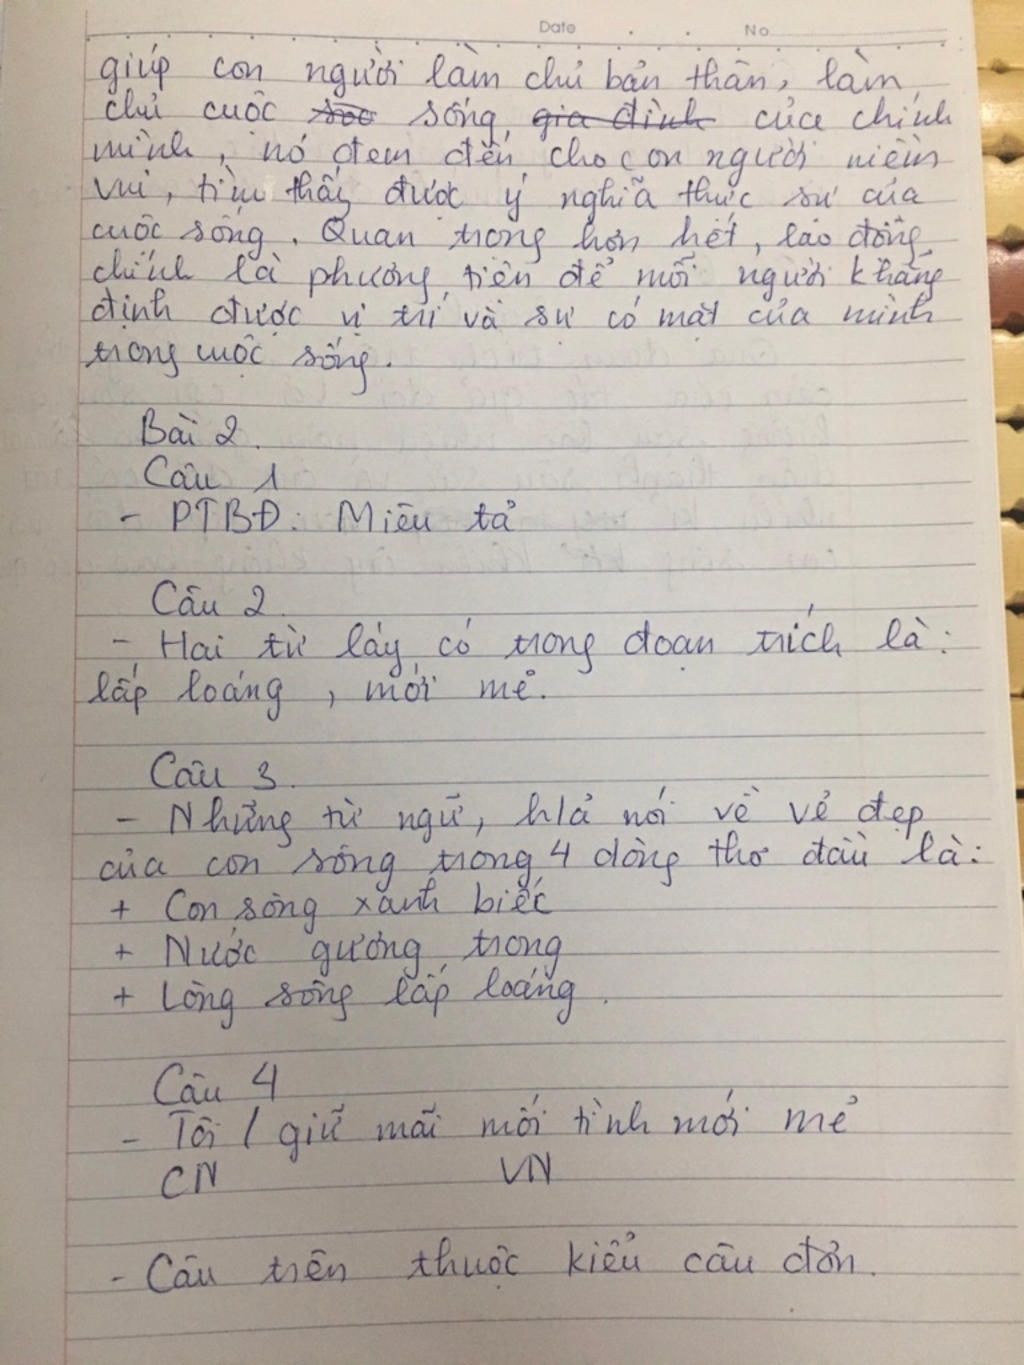 Date No
giúp con người làm chủ bản thân, làm
chủ cuộc sống, gia đình của chính
mình, nó đem đến cho con người niềm
vui, tìm thấy được ý nghĩa thực sự của
cuộc sống. Quan trọng hơn hết, lao động
chính là phương tiện để mỗi người khẳng
định được vị trí và sự có mặt của mình
trong cuộc sống.
Bài 2.
Câu 1
- PTBĐ: Miêu tả
Câu 2
- Hai từ láy có trong đoạn trích là:
lấp loáng, mới mẻ.
Câu 3.
- Những từ ngữ, h/ả nói về vẻ đẹp
của con sông trong 4 dòng thơ đầu là:
+ Con sông xanh biếc
+ Nước gương trong
+ Lòng sông lấp loáng.
Câu 4
- Tôi / giữ mãi mối tình mới mẻ
CN VN
- Câu trên thuộc kiểu câu đơn.